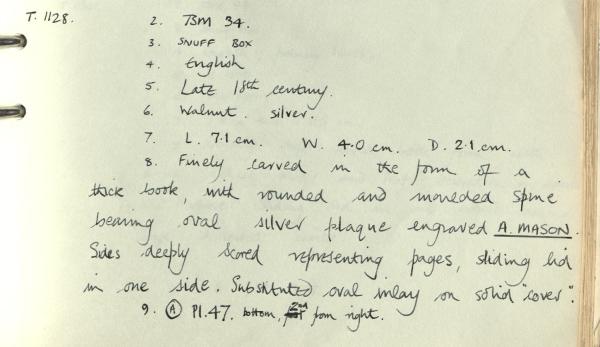 T. 1128.
2. TBM 34.
3. SNUFF BOX
4. English
5. Late 18th century.
6. Walnut. silver.
7. L. 7.1 cm. W. 4.0 cm. D. 2.1 cm.
8. Finely carved in the form of a
thick book, with rounded and moulded spine
bearing oval silver plaque engraved A. MASON.
Sides deeply scored representing pages, sliding lid
in one side. Substituted oval inlay on solid "cover".
9. (A) Pl. 47. bottom, 2nd from right.